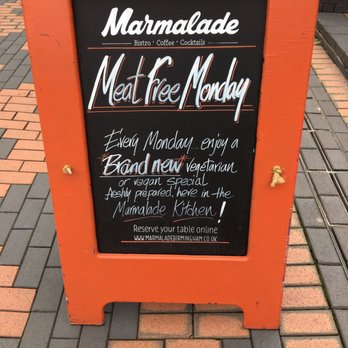 Marmalade
Bistro · Coffee · Cocktails
Meat Free Monday
Every Monday... enjoy a
Brand new vegetarian
or vegan special
freshly prepared, here in the
Marmalade Kitchen!
Reserve your table online
WWW.MARMALADEBIRMINGHAM.CO.UK